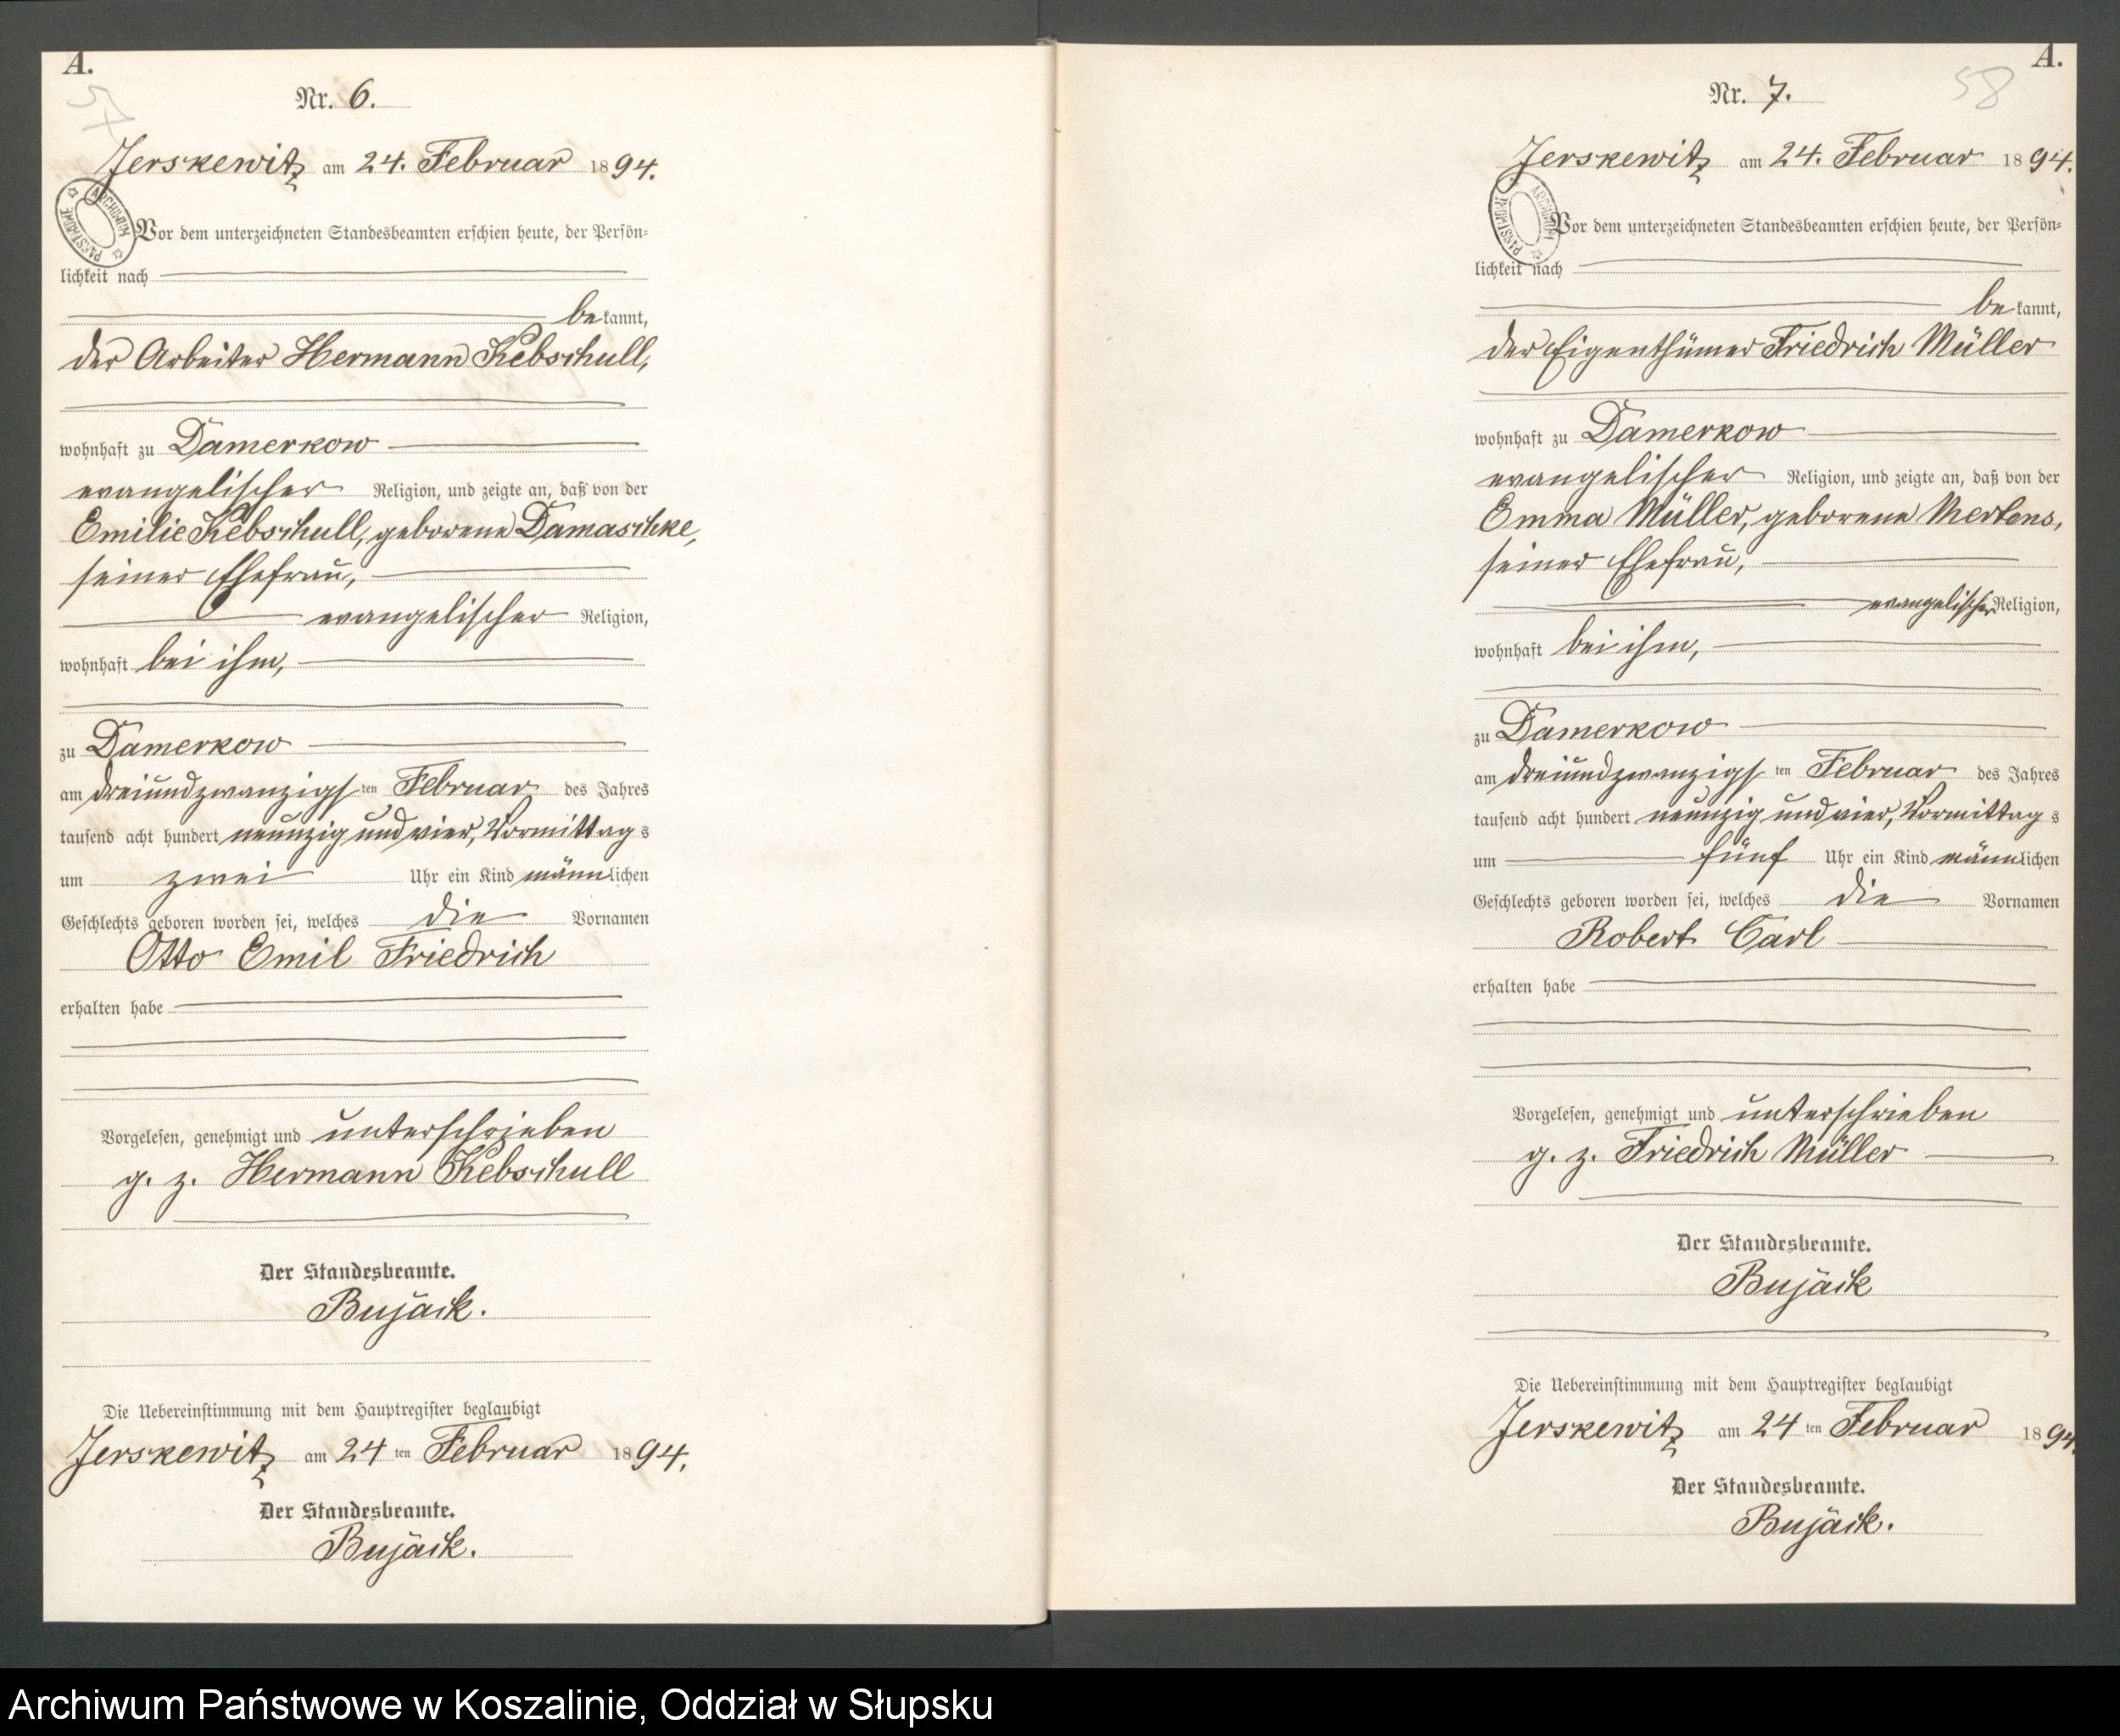 A.
57
Nr. 6.
Jerskewitz am 24. Februar 1894.
ARCHIWUM PAŃSTWOWE
Vor dem unterzeichneten Standesbeamten erschien heute, der Persön=
lichkeit nach
bekannt,
der Arbeiter Hermann Kebschull,
wohnhaft zu Damerkow
evangelischer Religion, und zeigte an, daß von der
Emilie Kebschull, geborene Damaschke,
seiner Ehefrau,
evangelischer Religion,
wohnhaft bei ihm,
zu Damerkow
am dreiundzwanzigsten Februar des Jahres
tausend acht hundert neunzig und vier, Vormittags
um zwei Uhr ein Kind männlichen
Geschlechts geboren worden sei, welches die Vornamen
Otto Emil Friedrich
erhalten habe
Vorgelesen, genehmigt und unterschrieben
g. z. Hermann Kebschull
Der Standesbeamte.
Bujack.
Die Uebereinstimmung mit dem Hauptregister beglaubigt
Jerskewitz am 24ten Februar 1894.
Der Standesbeamte.
Bujack.
A.
58
Nr. 7.
Jerskewitz am 24. Februar 1894.
ARCHIWUM PAŃSTWOWE
Vor dem unterzeichneten Standesbeamten erschien heute, der Persön=
lichkeit nach
bekannt,
der Eigenthümer Friedrich Müller
wohnhaft zu Damerkow
evangelischer Religion, und zeigte an, daß von der
Emma Müller, geborene Mertens,
seiner Ehefrau,
evangelischer Religion,
wohnhaft bei ihm,
zu Damerkow
am dreiundzwanzigsten Februar des Jahres
tausend acht hundert neunzig und vier, Vormittags
um fünf Uhr ein Kind männlichen
Geschlechts geboren worden sei, welches die Vornamen
Robert Carl
erhalten habe
Vorgelesen, genehmigt und unterschrieben
g. z. Friedrich Müller
Der Standesbeamte.
Bujack
Die Uebereinstimmung mit dem Hauptregister beglaubigt
Jerskewitz am 24ten Februar 1894.
Der Standesbeamte.
Bujack.
Archiwum Państwowe w Koszalinie, Oddział w Słupsku